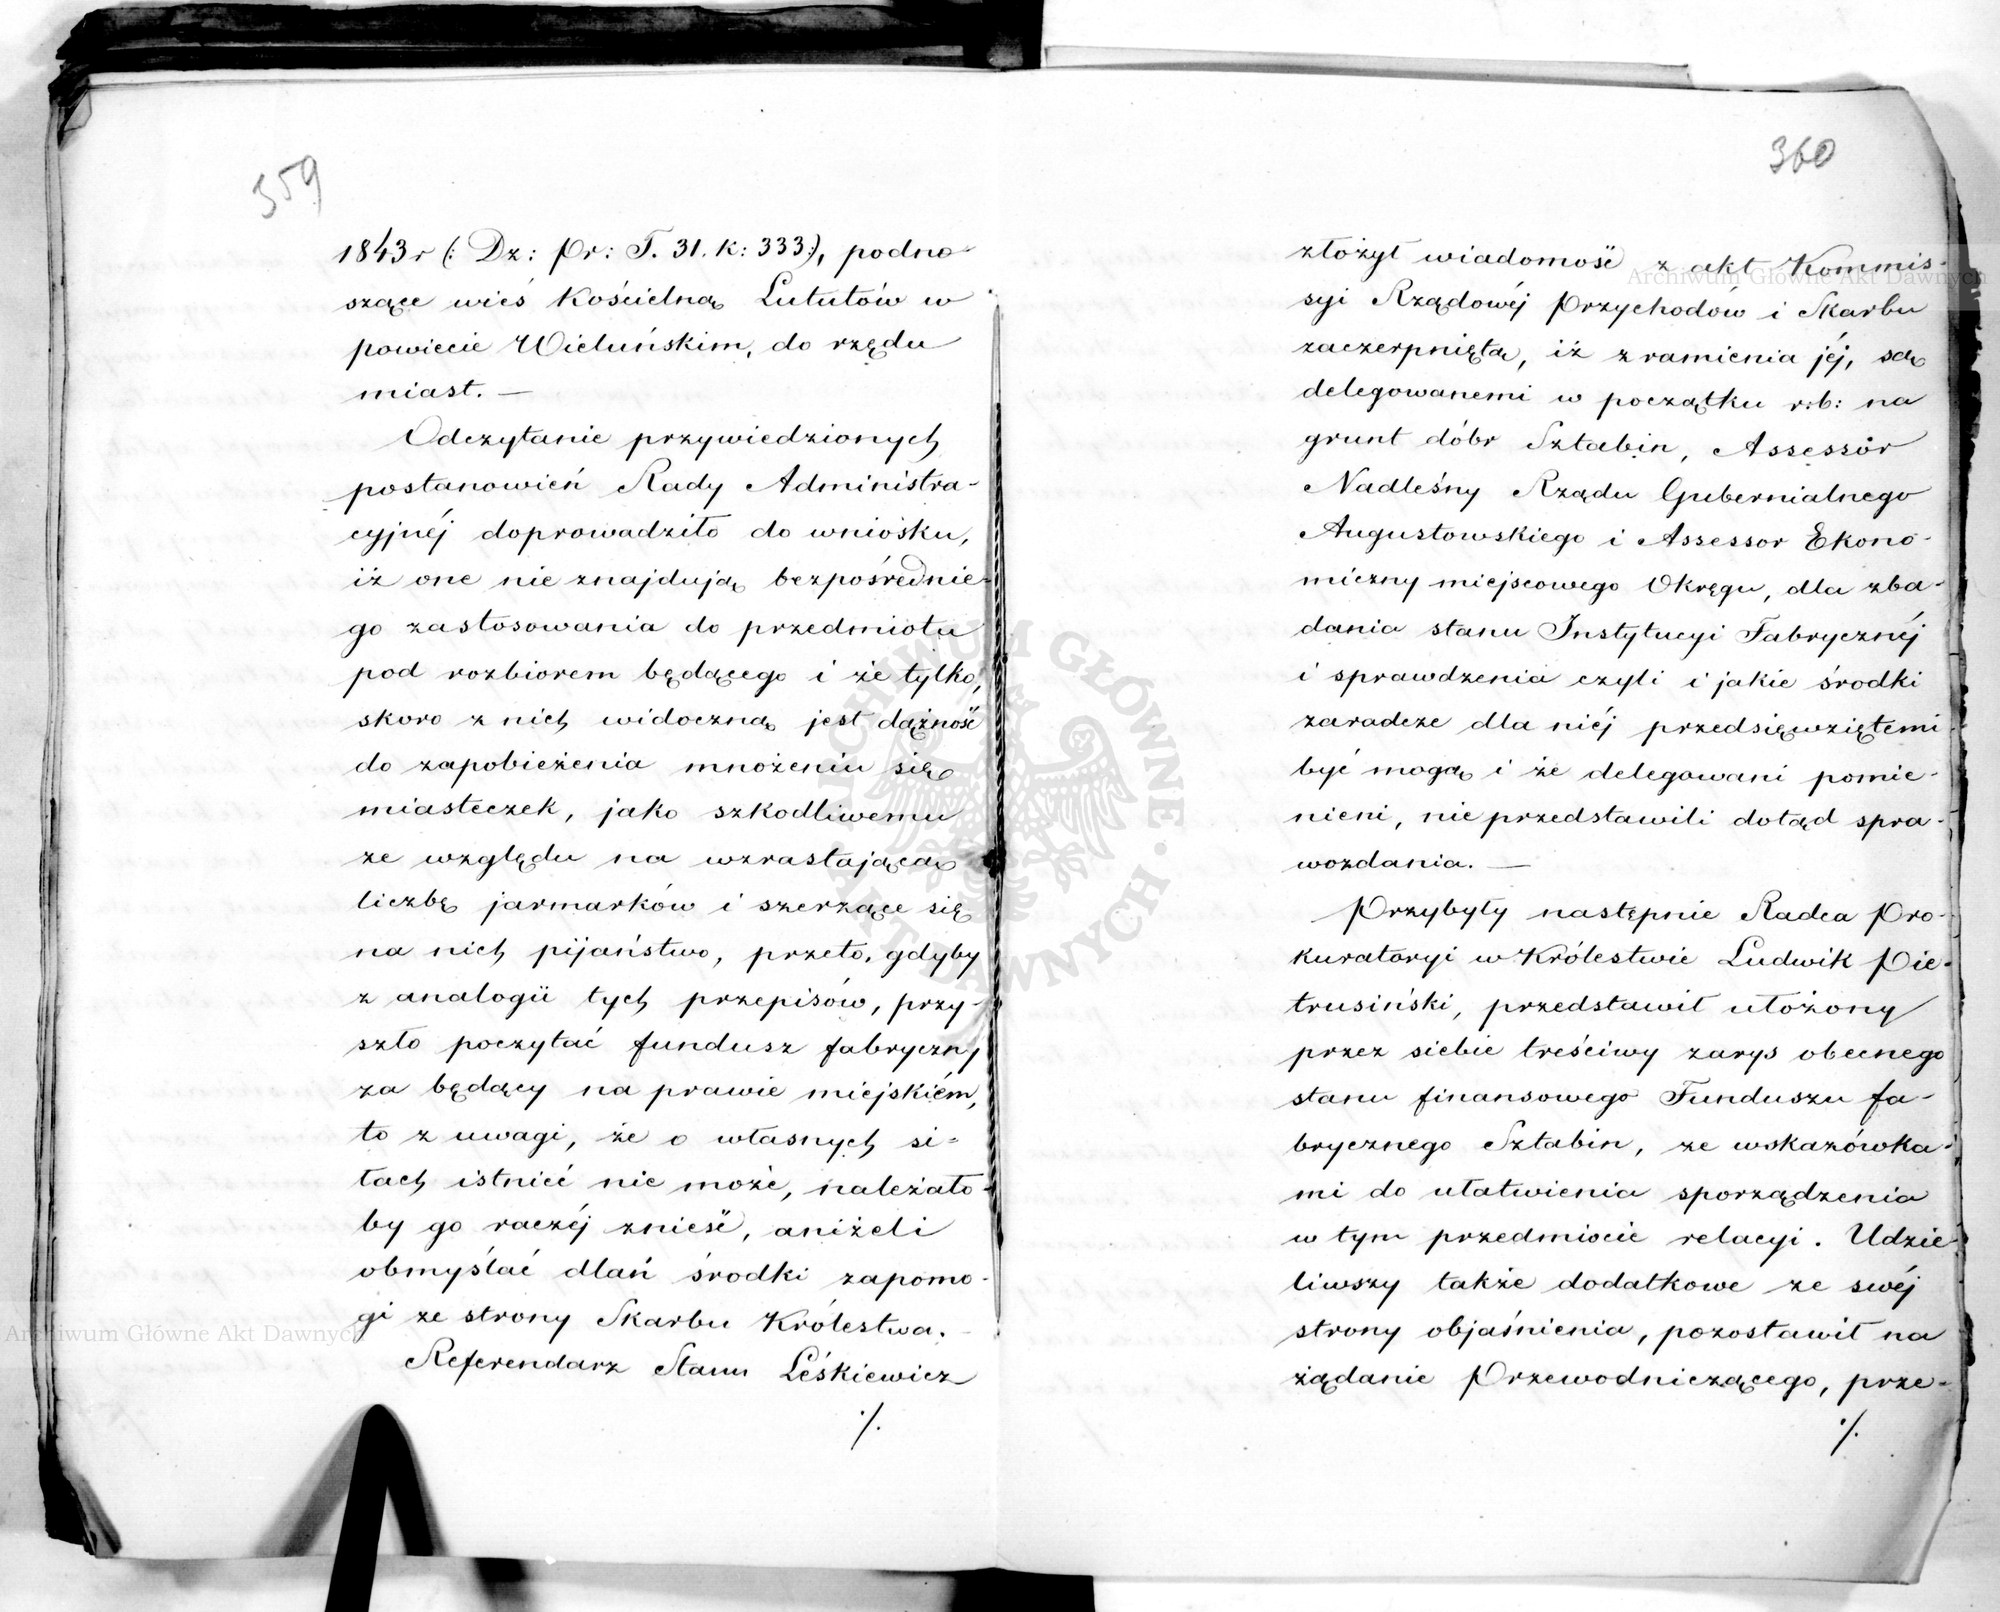 359
1843 r (: Dz: Pr: T. 31. K: 333:), podno-
szące wieś Kościelną Lututów w
powiecie Wieluńskim, do rzędu
miast. —
Odczytanie przywiedzionych
postanowień Rady Administra-
cyjnéj doprowadziło do wniosku,
iż one nie znajdują bezpośrednie-
go zastosowania do przedmiotu
pod rozbiorem będącego i że tylko,
skoro z nich widoczną jest dążność
do zapobieżenia mnożeniu się
miasteczek, jako szkodliwemu
ze względu na wzrastającą
liczbę jarmarków i szerzące się
na nich pijaństwo, przeto, gdyby
z analogii tych przepisów, przy-
szło poczytać fundusz fabryczny
za będący na prawie miejskiém,
to z uwagi, że o własnych si-
łach istnieć nie może, należało-
by go raczéj znieść, aniżeli
obmyślać dlań środki zapomo-
gi ze strony Skarbu Królestwa.
Referendarz Stanu Leśkiewicz
./.
360
złożył wiadomość z akt Kommis-
syi Rządowéj Przychodów i Skarbu
zaczerpniętą, iż z ramienia jéj, są
delegowanemi w początku r: b: na
grunt dóbr Sztabin, Assessór
Nadleśny Rządu Gubernialnego
Augustowskiego i Assessor Ekono-
miczny miejscowego Okręgu, dla zba-
dania stanu Instytucyi Fabrycznéj
i sprawdzenia czyli i jakie środki
zaradcze dla niéj przedsięwziętemi
być mogą i że delegowani pomie-
nieni, nie przedstawili dotąd spra-
wozdania. —
Przybyły następnie Radca Pro-
kuratoryi w Królestwie Ludwik Pie-
trusiński, przedstawił ułożony
przez siebie treściwy zarys obecnego
stanu finansowego Funduszu fa-
brycznego Sztabin, ze wskazówka-
mi do ułatwienia sporządzenia
w tym przedmiocie relacyi. Udzie
liwszy także dodatkowe ze swéj
strony objaśnienia, pozostawił na
żądanie Przewodniczącego, prze-
./.
Archiwum Główne Akt Dawnych
Archiwum Główne Akt Dawnych
ARCHIWUM GŁÓWNE · AKT DAWNYCH ·